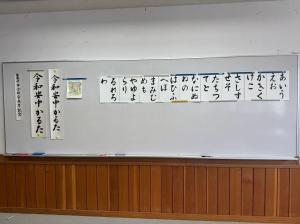 あいう
えお
かきく
けこ
さしす
せそ
たちつ
てと
なにぬ
ねの
はひふ
へほ
まみむ
めも
やゆよ
らり
るれろ
わ
令和安中かるた
令和安中かるた